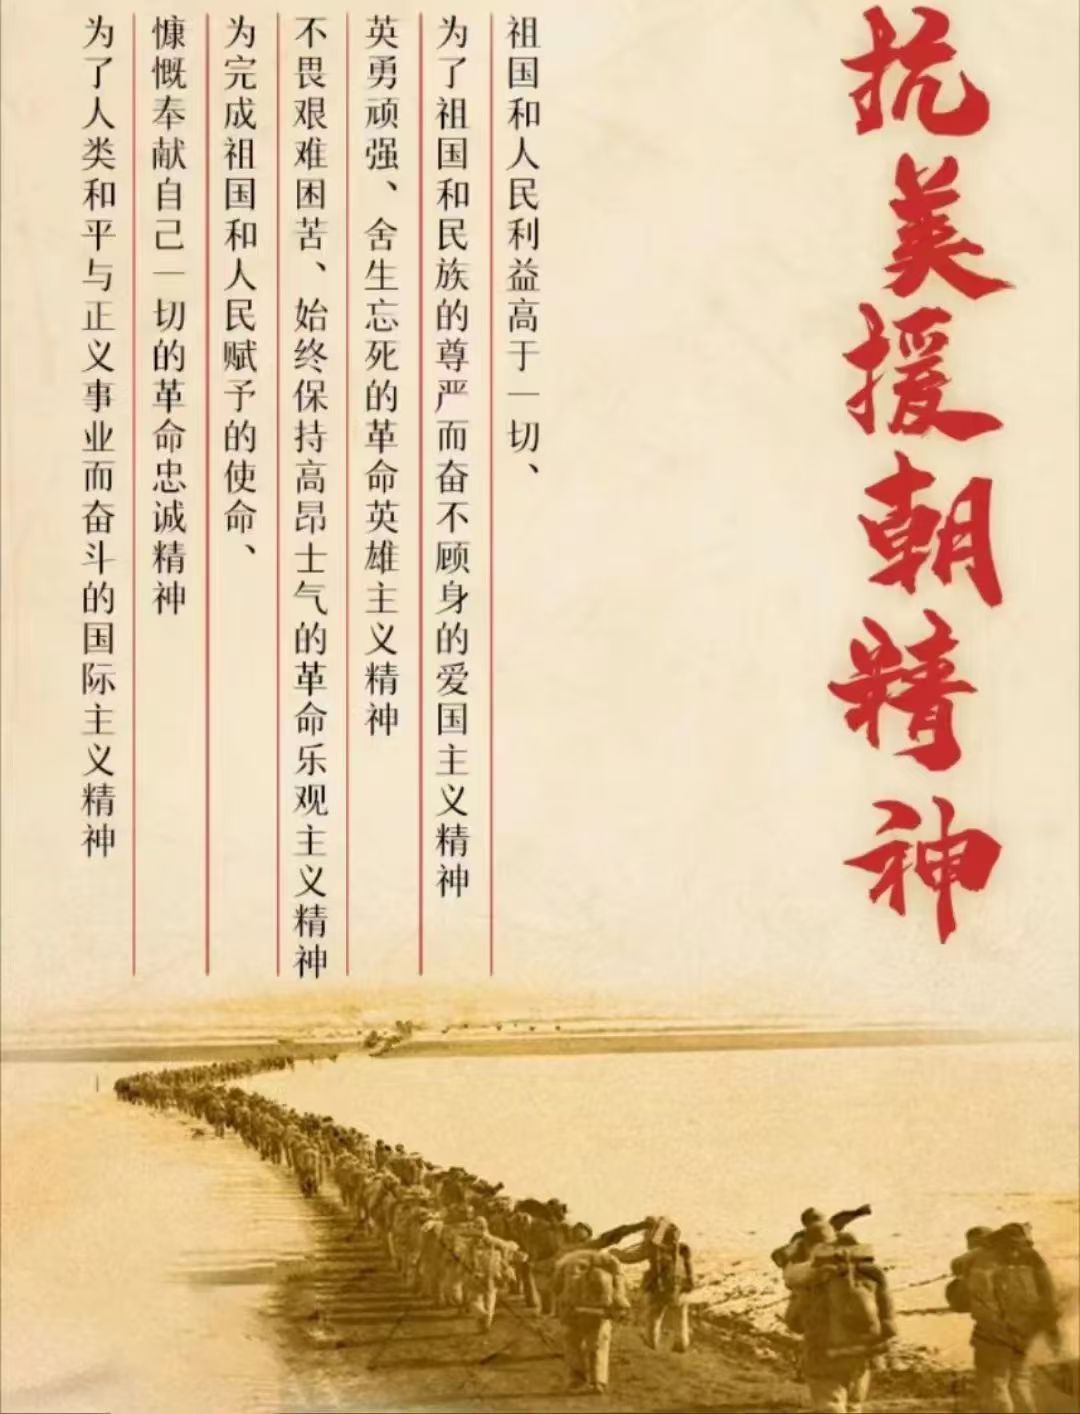 抗美援朝精神
祖国和人民利益高于一切、
为了祖国和民族的尊严而奋不顾身的爱国主义精神
英勇顽强、舍生忘死的革命英雄主义精神
不畏艰难困苦、始终保持高昂士气的革命乐观主义精神
为完成祖国和人民赋予的使命、
慷慨奉献自己一切的革命忠诚精神
为了人类和平与正义事业而奋斗的国际主义精神